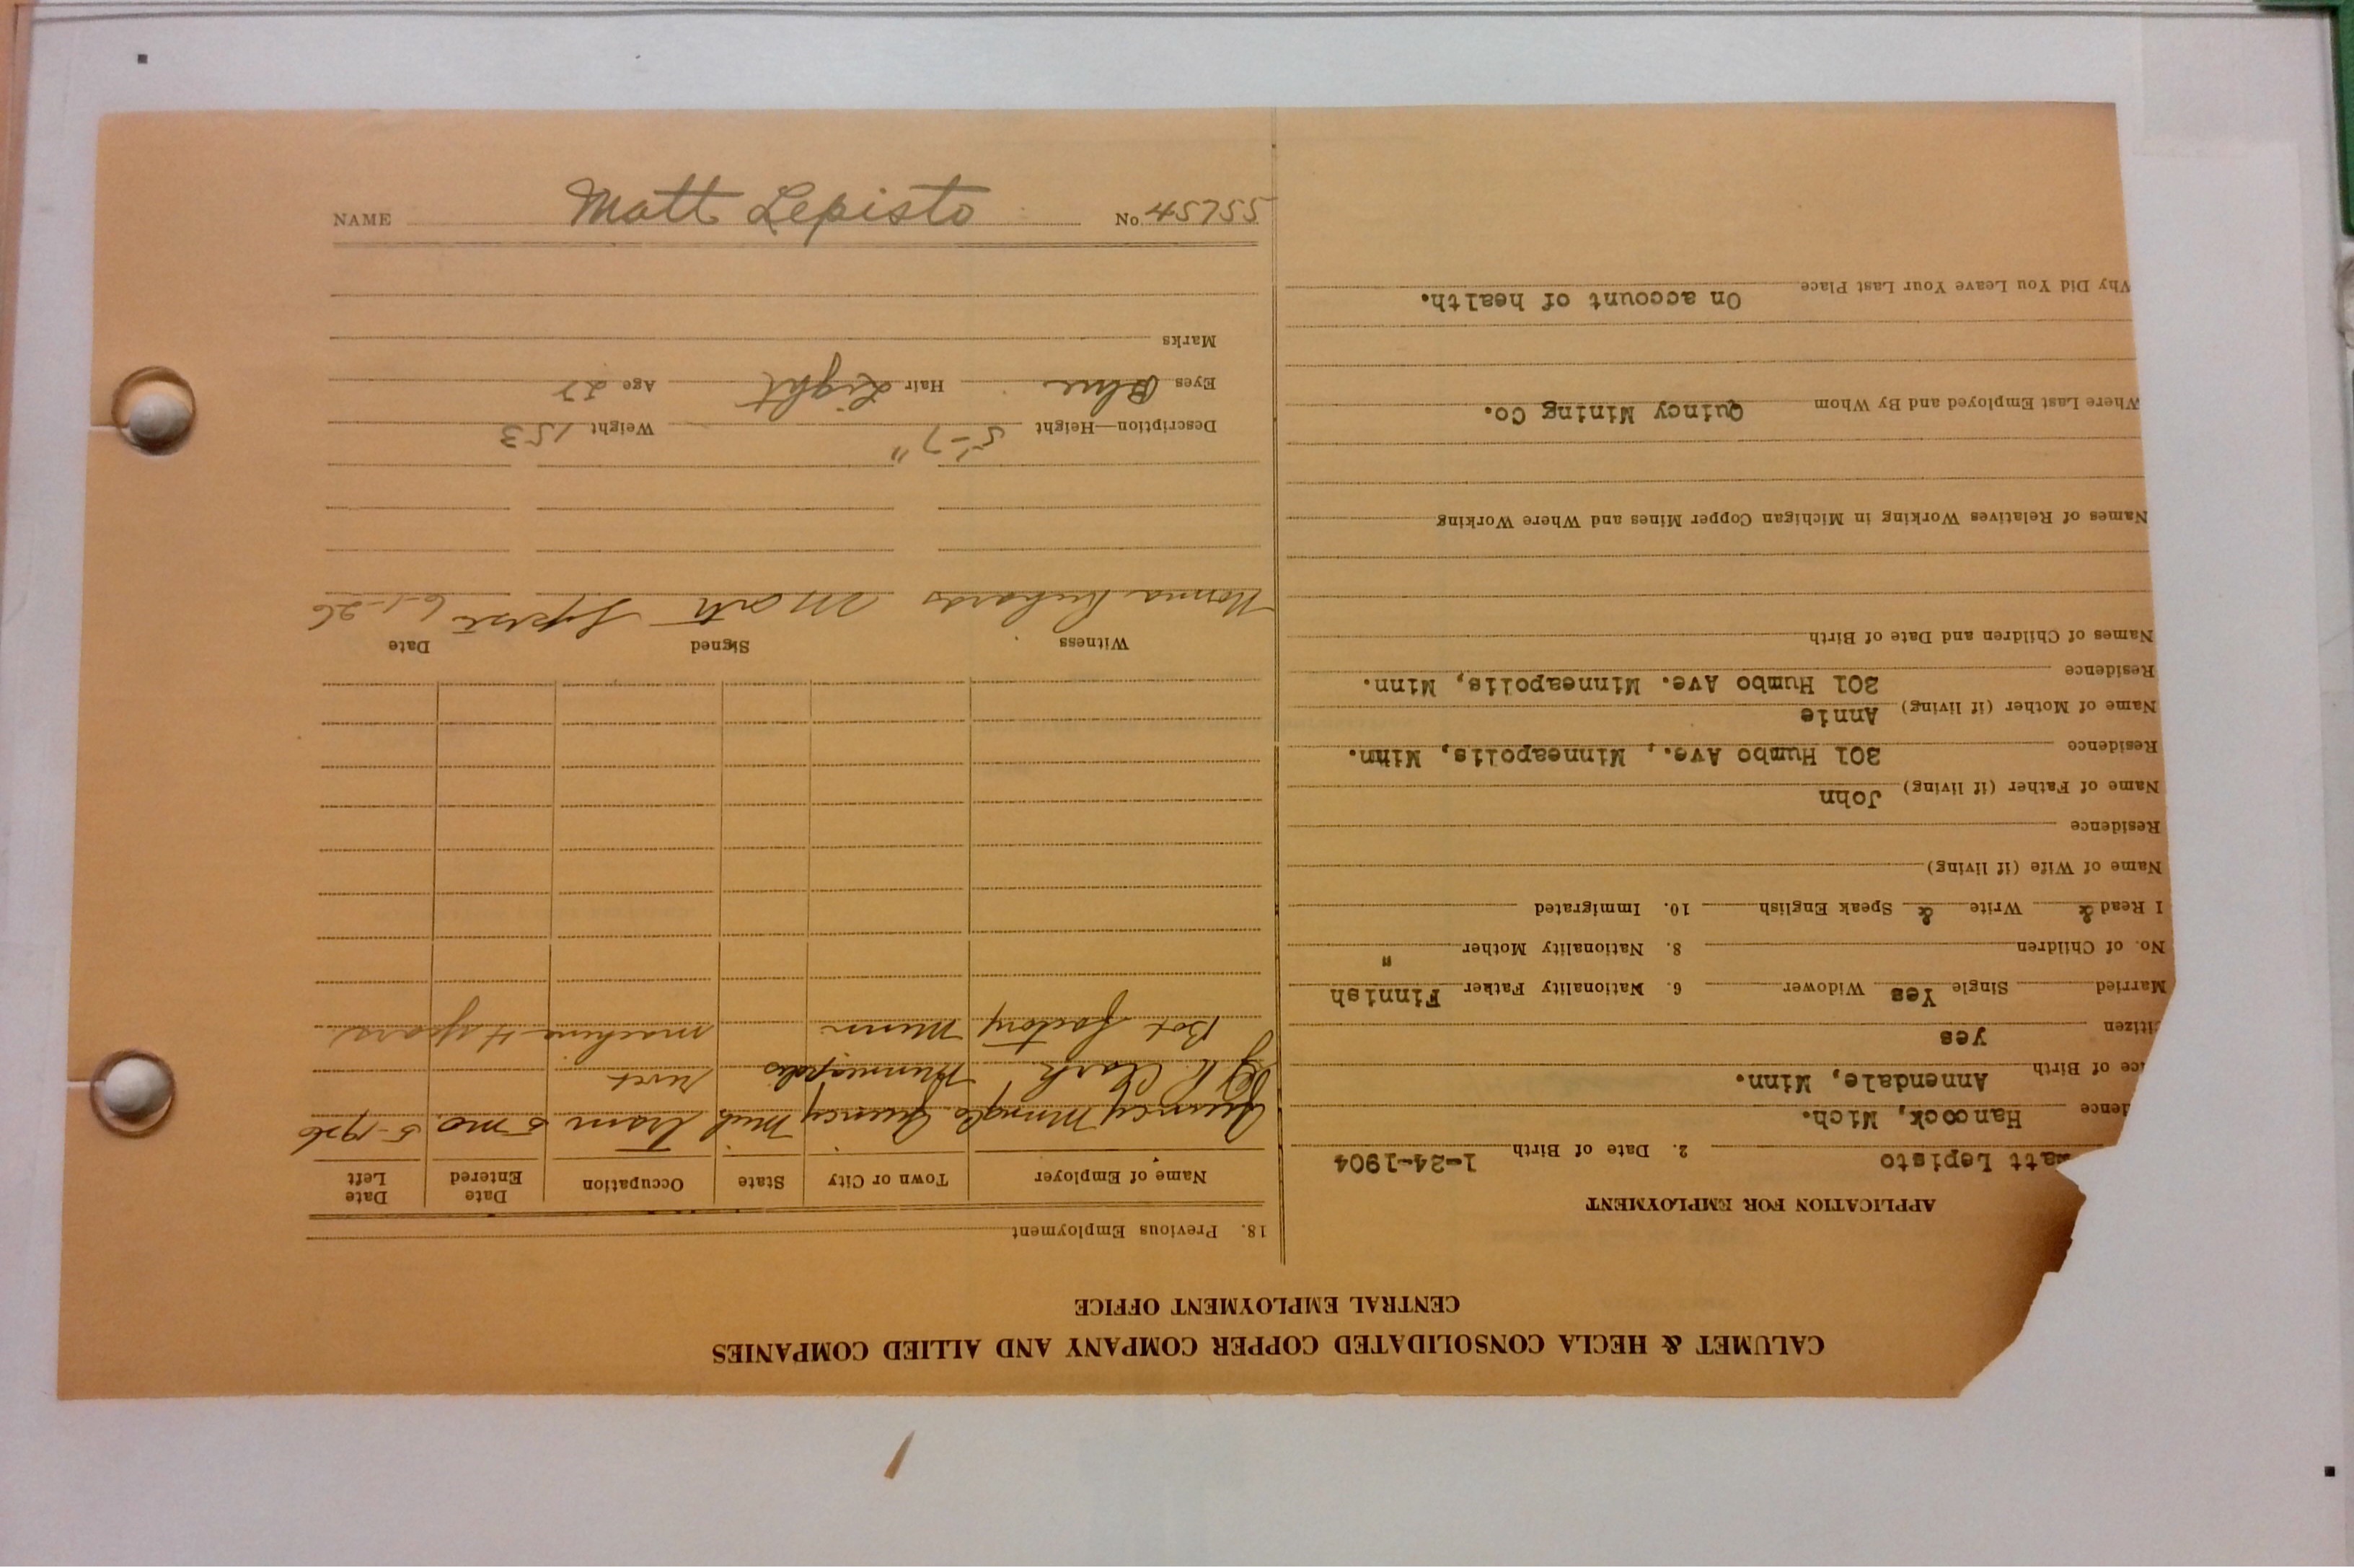 CALUMET & HECLA CONSOLIDATED COPPER COMPANY AND ALLIED COMPANIES
CENTRAL EMPLOYMENT OFFICE
APPLICATION FOR EMPLOYMENT
Matt Lepisto 2. Date of Birth 1-24-1904
dence Hancock, Mich.
ace of Birth Annendale, Minn.
itizen yes
Married Single Yes Widower 6. Nationality Father Finnish
No. of Children 8. Nationality Mother "
I Read & Write & Speak English 10. Immigrated
Name of Wife (if living)
Residence
Name of Father (if living) John
Residence 301 Humbo Ave., Minneapolis, Minn.
Name of Mother (if living) Annie
Residence 301 Humbo Ave. Minneapolis, Minn.
Names of Children and Date of Birth
Names of Relatives Working in Michigan Copper Mines and Where Working
Where Last Employed and By Whom Quincy Mining Co.
Why Did You Leave Your Last Place On account of health.
18. Previous Employment
Name of Employer Town or City State Occupation Date Entered Date Left
Quincy Mining Co Quincy Mich tram 5 mo. 5-1926
J R Clark Minneapolis
Box factory Minn machine 4 years
Witness Signed Date
Matt 6-1-26
Description—Height 5'-7" Weight 153
Eyes Blue Hair Light Age 22
Marks
NAME Matt Lepisto No. 45755